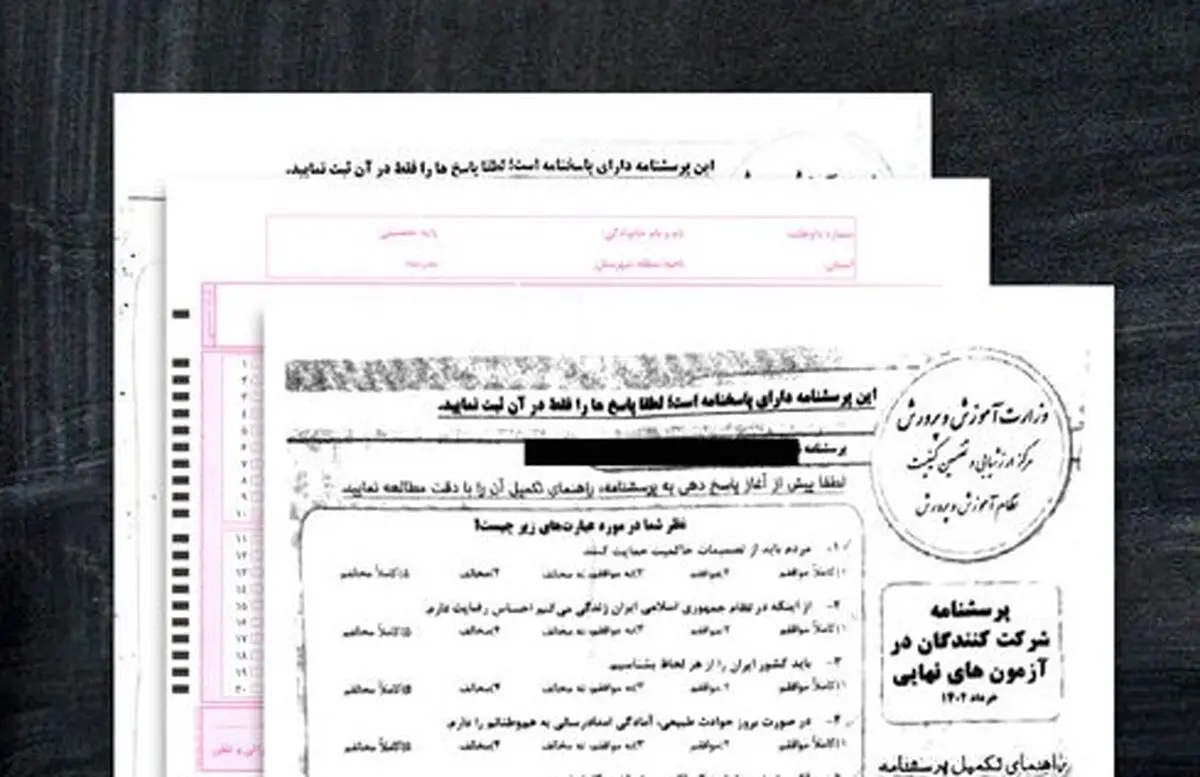 این پرسشنامه دارای پاسخنامه است؛ لطفا پاسخ ها را فقط در آن ثبت نمایید.
نام و نام خانوادگی:
پایه تحصیلی
استان:
ناحیه/منطقه/شهرستان:
مدرسه:
۱
۲
۳
۴
۵
۶
۷
۸
۹
۱۰
۱۱
۱۲
۱۳
۱۴
۱۵
۱۶
۱۷
۱۸
۱۹
۲۰
این پرسشنامه دارای پاسخنامه است؛ لطفا پاسخ ها را فقط در آن ثبت نمایید.
وزارت آموزش و پرورش
مرکز ارزشیابی و تضمین کیفیت
نظام آموزش و پرورش
پرسشنامه
لطفا پیش از آغاز پاسخ دهی به پرسشنامه، راهنمای تکمیل آن را با دقت مطالعه نمایید.
نظر شما در مورد عبارت‌های زیر چیست؟
۱- مردم باید از تصمیمات حاکمیت حمایت کنند.
۱)کاملاً موافقم ۲)موافقم ۳)نه موافقم، نه مخالف ۴)مخالفم ۵)کاملاً مخالفم
۲- از اینکه در نظام جمهوری اسلامی ایران زندگی می‌کنم احساس رضایت دارم.
۱)کاملاً موافقم ۲)موافقم ۳)نه موافقم، نه مخالف ۴)مخالفم ۵)کاملاً مخالفم
۳- باید کشور ایران را از هر لحاظ بشناسیم.
۱)کاملاً موافقم ۲)موافقم ۳)نه موافقم، نه مخالف ۴)مخالفم ۵)کاملاً مخالفم
۴- در صورت بروز حوادث طبیعی، آمادگی امدادرسانی به هم‌وطنانم را دارم.
۱)کاملاً موافقم ۲)موافقم ۳)نه موافقم، نه مخالف ۴)مخالفم ۵)کاملاً مخالفم
پرسشنامه
شرکت کنندگان در
آزمون های نهایی
خرداد ۱۴۰۲
راهنمای تکمیل پرسشنامه